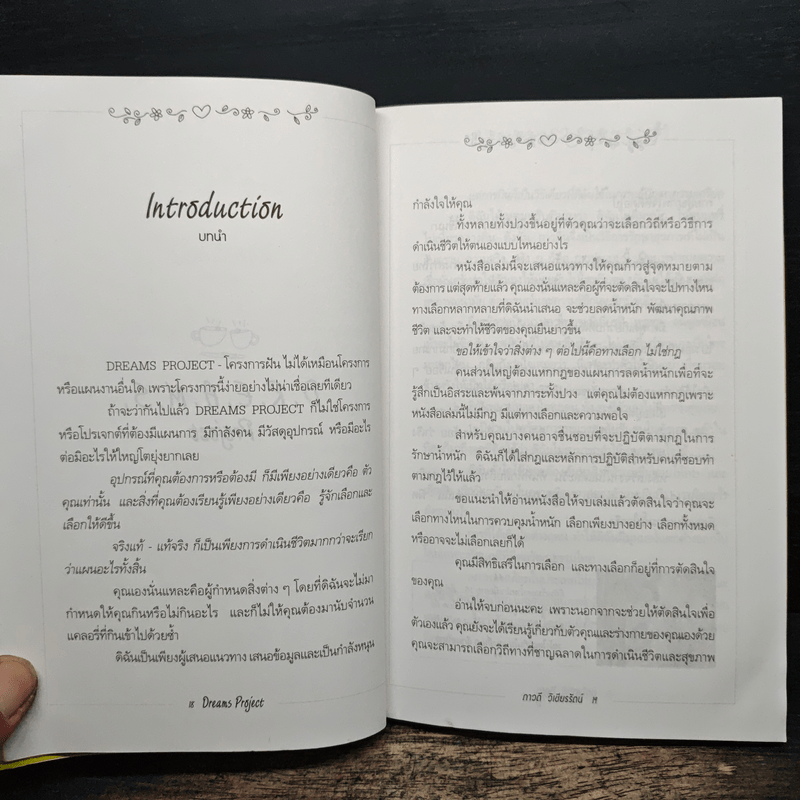 Introduction
บทนำ
DREAMS PROJECT - โครงการฝัน ไม่ได้เหมือนโครงการ
หรือแผนงานอื่นใด เพราะโครงการนี้ง่ายอย่างไม่น่าเชื่อเลยทีเดียว
ถ้าจะว่ากันไปแล้ว DREAMS PROJECT ก็ไม่ใช่โครงการ
หรือโปรเจกต์ที่ต้องมีแผนการ มีกำลังคน มีวัสดุอุปกรณ์ หรือมีอะไร
ต่อมิอะไรให้ใหญ่โตยุ่งยากเลย
อุปกรณ์ที่คุณต้องการหรือต้องมี ก็มีเพียงอย่างเดียวคือ ตัว
คุณเท่านั้น และสิ่งที่คุณต้องเรียนรู้เพียงอย่างเดียวคือ รู้จักเลือกและ
เลือกให้ดีขึ้น
จริงแท้ - แท้จริง ก็เป็นเพียงการดำเนินชีวิตมากกว่าจะเรียก
ว่าแผนอะไรทั้งสิ้น
คุณเองนั่นแหละคือผู้กำหนดสิ่งต่าง ๆ โดยที่ดิฉันจะไม่มา
กำหนดให้คุณกินหรือไม่กินอะไร และก็ไม่ให้คุณต้องมานับจำนวน
แคลอรี่ที่กินเข้าไปด้วยซ้ำ
ดิฉันเป็นเพียงผู้เสนอแนวทาง เสนอข้อมูลและเป็นกำลังหนุน
Dreams Project
กำลังใจให้คุณ
ทั้งหลายทั้งปวงขึ้นอยู่ที่ตัวคุณว่าจะเลือกวิถีหรือวิธีการ
ดำเนินชีวิตให้ตนเองแบบไหนอย่างไร
หนังสือเล่มนี้จะเสนอแนวทางให้คุณก้าวสู่จุดหมายตาม
ต้องการ แต่สุดท้ายแล้ว คุณเองนั่นแหละคือผู้ที่จะตัดสินใจจะไปทางไหน
ทางเลือกหลากหลายที่ดิฉันนำเสนอ จะช่วยลดน้ำหนัก พัฒนาคุณภาพ
ชีวิต และจะทำให้ชีวิตของคุณยืนยาวขึ้น
ขอให้เข้าใจว่าสิ่งต่าง ๆ ต่อไปนี้คือทางเลือก ไม่ใช่กฎ
คนส่วนใหญ่ต้องแหกกฎของแผนการลดน้ำหนักเพื่อที่จะ
รู้สึกเป็นอิสระและพ้นจากภาระทั้งปวง แต่คุณไม่ต้องแหกกฎเพราะ
หนังสือเล่มนี้ไม่มีกฎ มีแต่ทางเลือกและความพอใจ
สำหรับคุณบางคนอาจชื่นชอบที่จะปฏิบัติตามกฎในการ
รักษาน้ำหนัก ดิฉันก็ได้ใส่กฎและหลักการปฏิบัติสำหรับคนที่ชอบทำ
ตามกฎไว้ให้แล้ว
ขอแนะนำให้อ่านหนังสือให้จบเล่มแล้วตัดสินใจว่าคุณจะ
เลือกทางไหนในการควบคุมน้ำหนัก เลือกเพียงบางอย่าง เลือกทั้งหมด
หรืออาจจะไม่เลือกเลยก็ได้
คุณมีสิทธิเสรีในการเลือก และทางเลือกก็อยู่ที่การตัดสินใจ
ของคุณ
อ่านให้จบก่อนนะคะ เพราะนอกจากจะช่วยให้ตัดสินใจเพื่อ
ตัวเองแล้ว คุณยังจะได้เรียนรู้เกี่ยวกับตัวคุณและร่างกายของคุณเองด้วย
คุณจะสามารถเลือกวิถีทางที่ชาญฉลาดในการดำเนินชีวิตและสุขภาพ
ภาวดี วิเชียรรัตน์